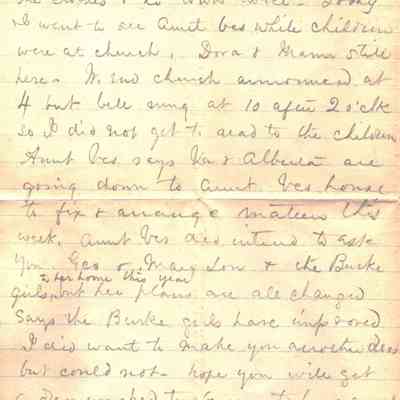 I went to see Aunt Ves while children
were at church. Dora & Mama still
here. church announced at
4 but bell rung at 10 after 2 o'clk
so I did not get to read to the children
Aunt Ves says & Alberta are
going down to Aunt Ves house
to fix & arrange this
week. Aunt Ves did intend to ask
you Geo & Mary Lou & the Burke
to her home this year
girls, but her plans are all changed
Says the Burke girls have improved
I did want to make you another dress
but could not. hope you will get